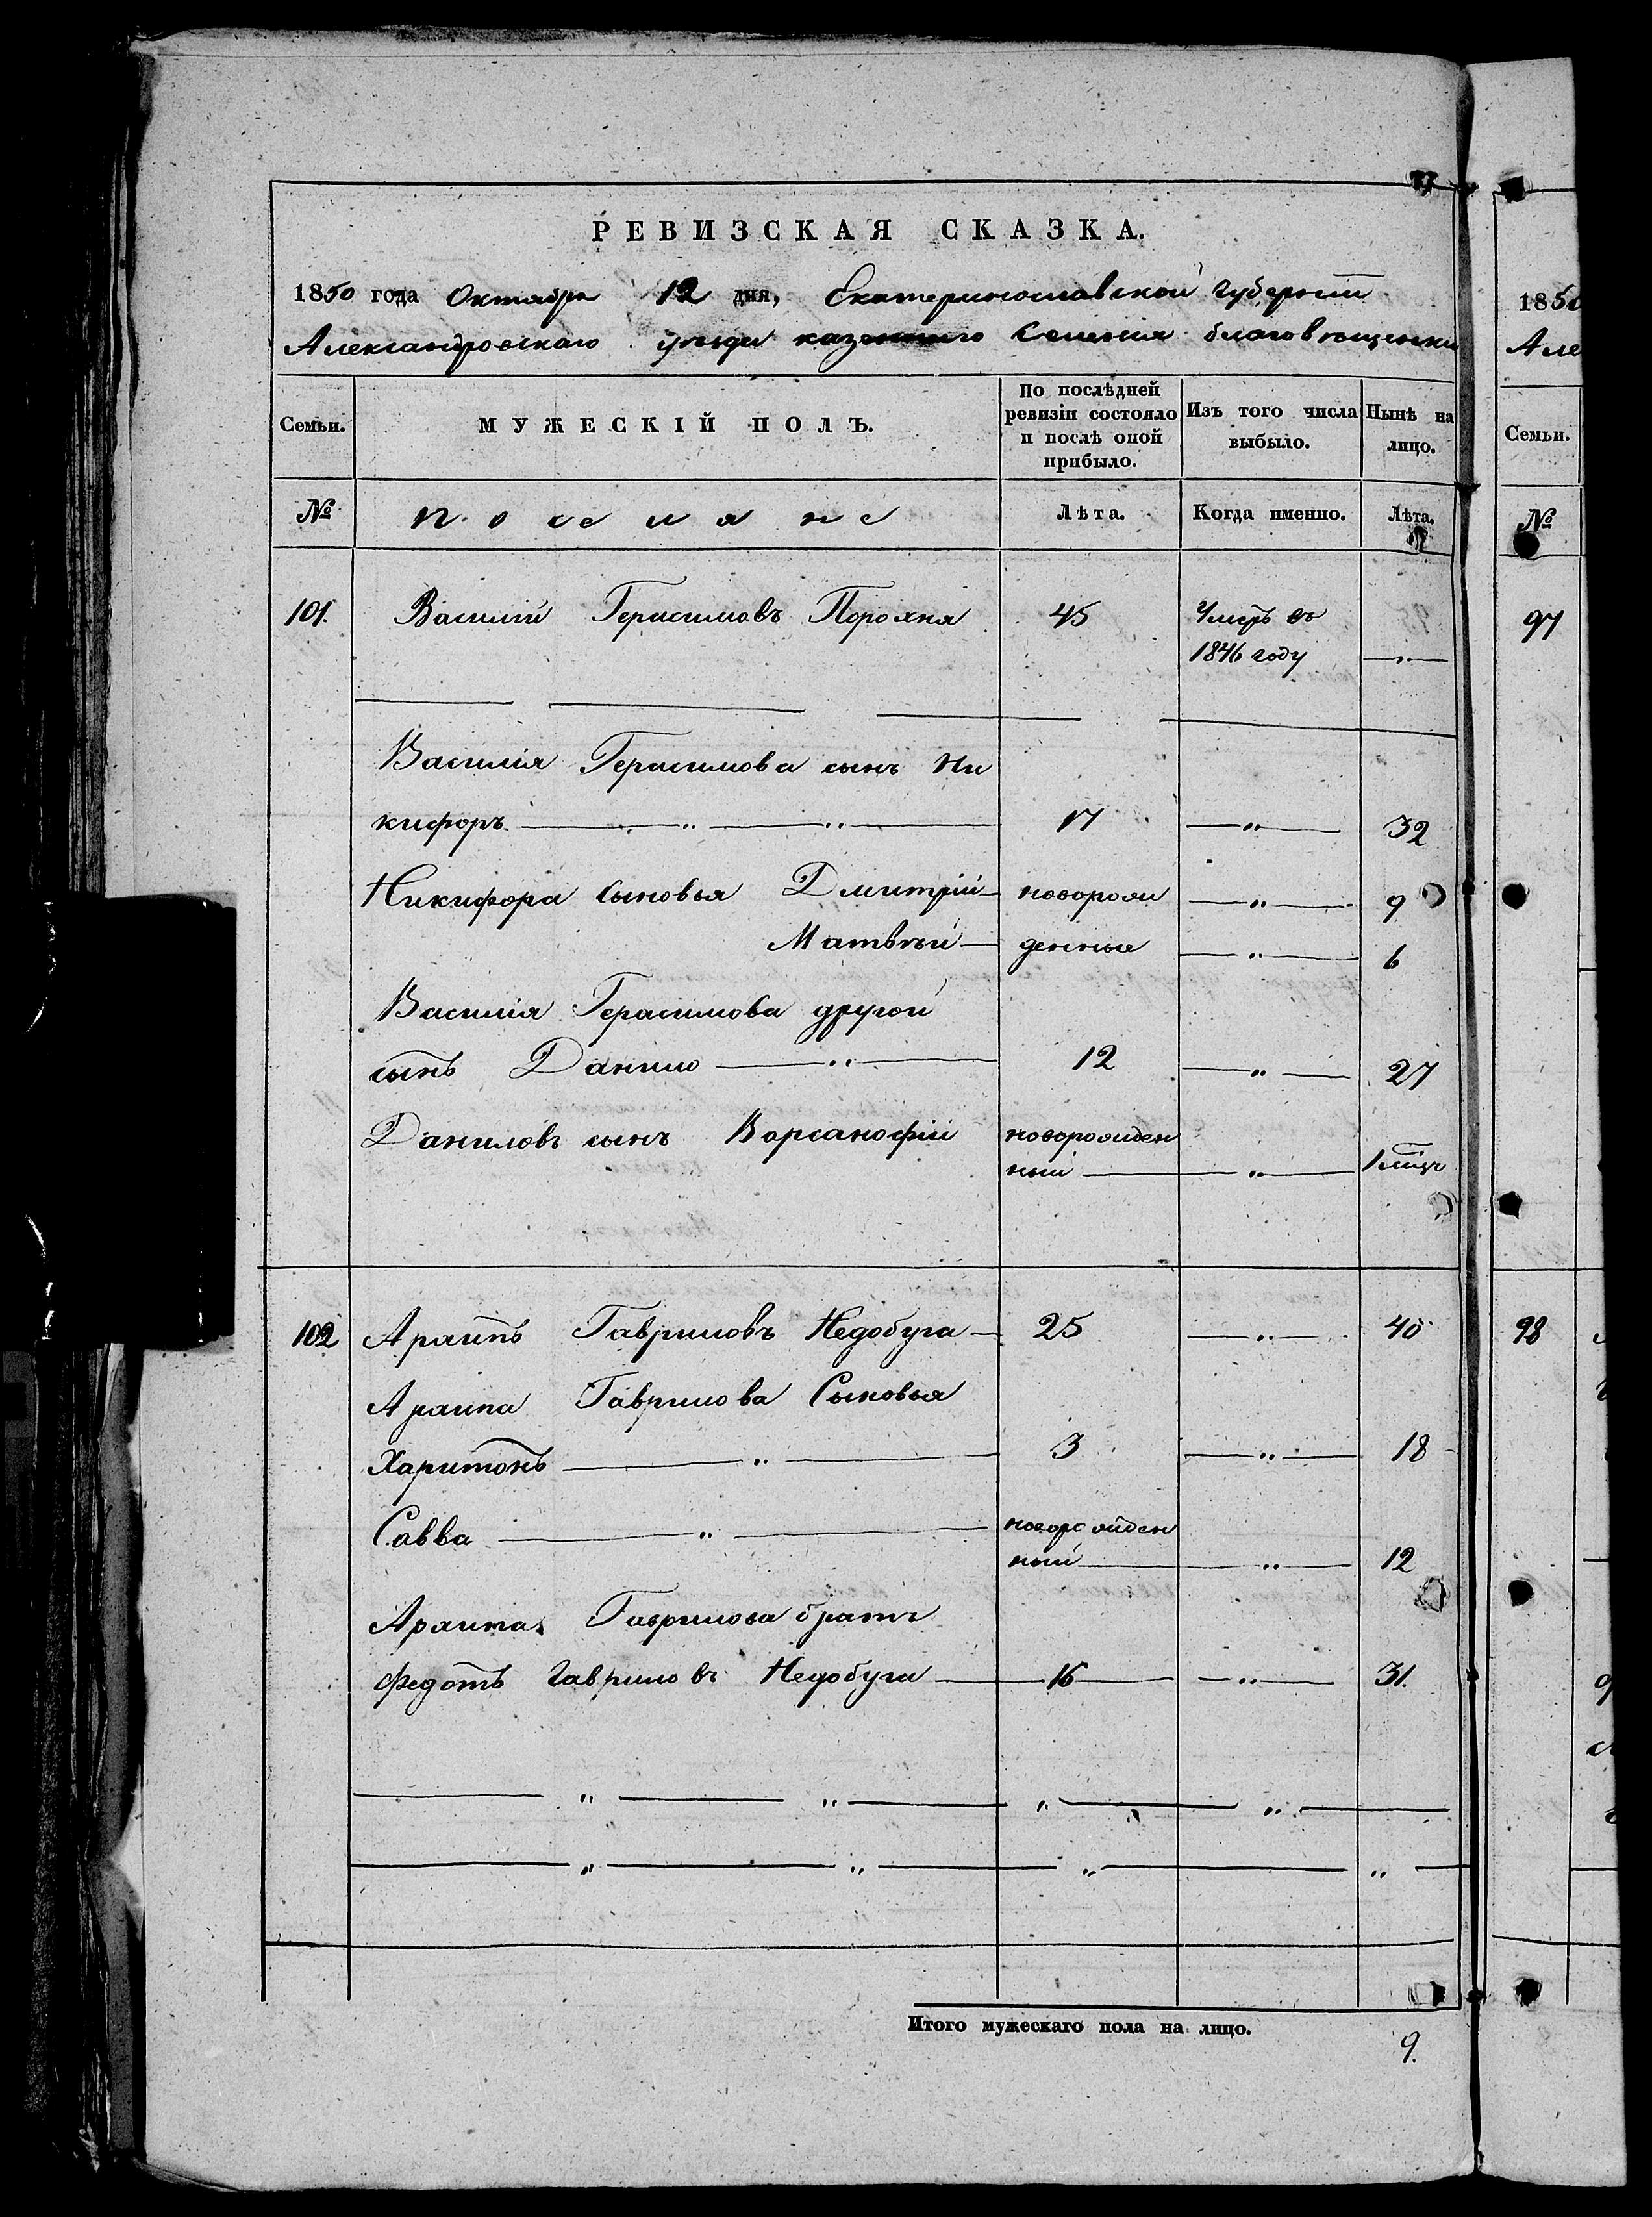 РЕВИЗСКАЯ СКАЗКА.
1850 года Октября 12 дня, Екатеринославской губернiи
Александровскаго уѣзда казеннаго селенiя благовѣщенки
Семьи.
МУЖЕСКIЙ ПОЛЪ.
По послѣдней ревизiи состояло и послѣ оной прибыло.
Изъ того числа выбыло.
Нынѣ на лицо.
№
поселяне
Лѣта.
Когда именно.
Лѣта.
101. Василiй Герасимовъ Порохня 45 Умеръ въ
1846 году — „ —
Василiя Герасимова сынъ Ни
кифоръ — „ — „ — 17 — „ — 32
Никифора сыновья Дмитрiй — новорож — „ — 9
Матвѣй — денные — „ — 6
Василiя Герасимова другой
сынъ Данило — „ — 12 — „ — 27
Даниловъ сынъ Варсанофiй новорожден
ный — „ — 1 мѣц
102 Архипъ Гавриловъ Недобуга — 25 — „ — 40
Архипа Гаврилова Сыновья
Харитонъ — „ — 3 — „ — 18
Савва — „ — новорожден
ный — „ — 12
Архипа Гаврилова братъ
Федотъ Гавриловъ Недобуга — 16 — „ — 31.
— „ — „ — „ — „ —
— „ — „ — „ — „ —
Итого мужескаго пола на лицо.
9.
1850
Але
Семьи.
№
97
98